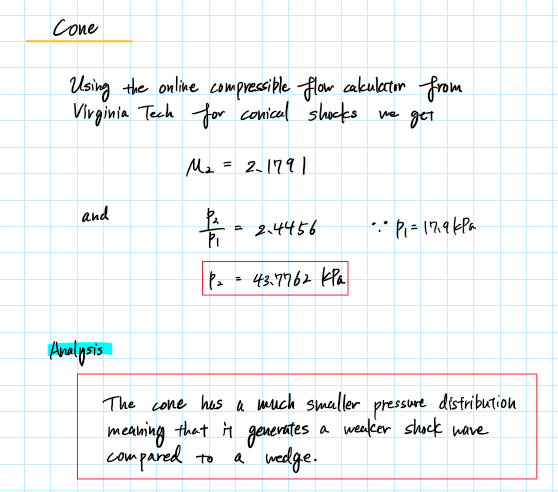 Cone
Using the online compressible flow calculator from
Virginia Tech for conical shocks we get
M₂ = 2.1791
and p₂/p₁ = 2.4456 ∵ p₁ = 17.9 kPa
p₂ = 43.7762 kPa
Analysis
The cone has a much smaller pressure distribution
meaning that it generates a weaker shock wave
compared to a wedge.